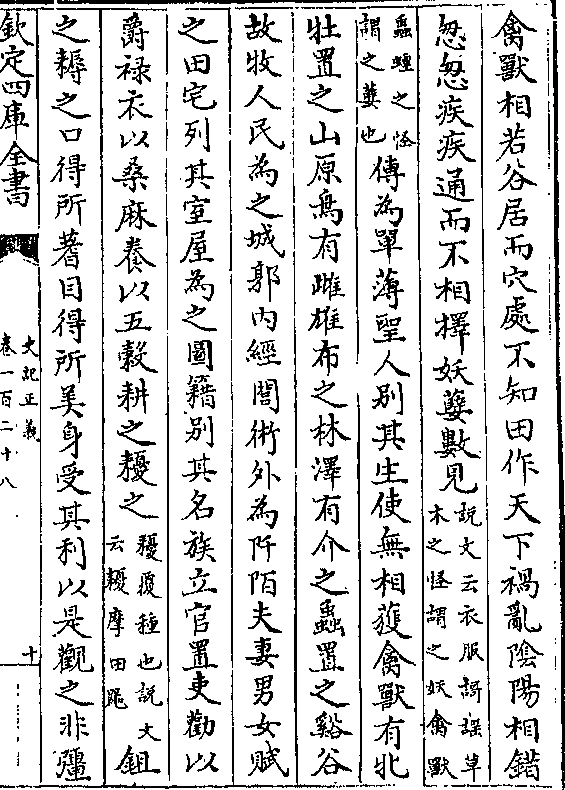 禽獸相若谷居而穴處不知田作天下禍亂陰陽相錯
忽忽疾疾通而不相擇妖孽數見說文云衣服謌謡草
木之怪謂之妖禽獸
蟲蝗之怪
謂之蠥也傳為單薄聖人別其生使無相獲禽獸有牝
牡置之山原鳥有雌雄布之林澤有介之蟲置之谿谷
故牧人民為之城郭內經閭術外為阡陌夫妻男女賦
之田宅列其室屋為之圖籍別其名族立官置吏勸以
爵祿衣以桑麻養以五穀耕之耰之耰覆種也說文
云耰摩田器鉏
之耨之口得所蓍目得所美身受其利以是觀之非彊
欽定四庫全書
史記正義
卷一百二十八
十